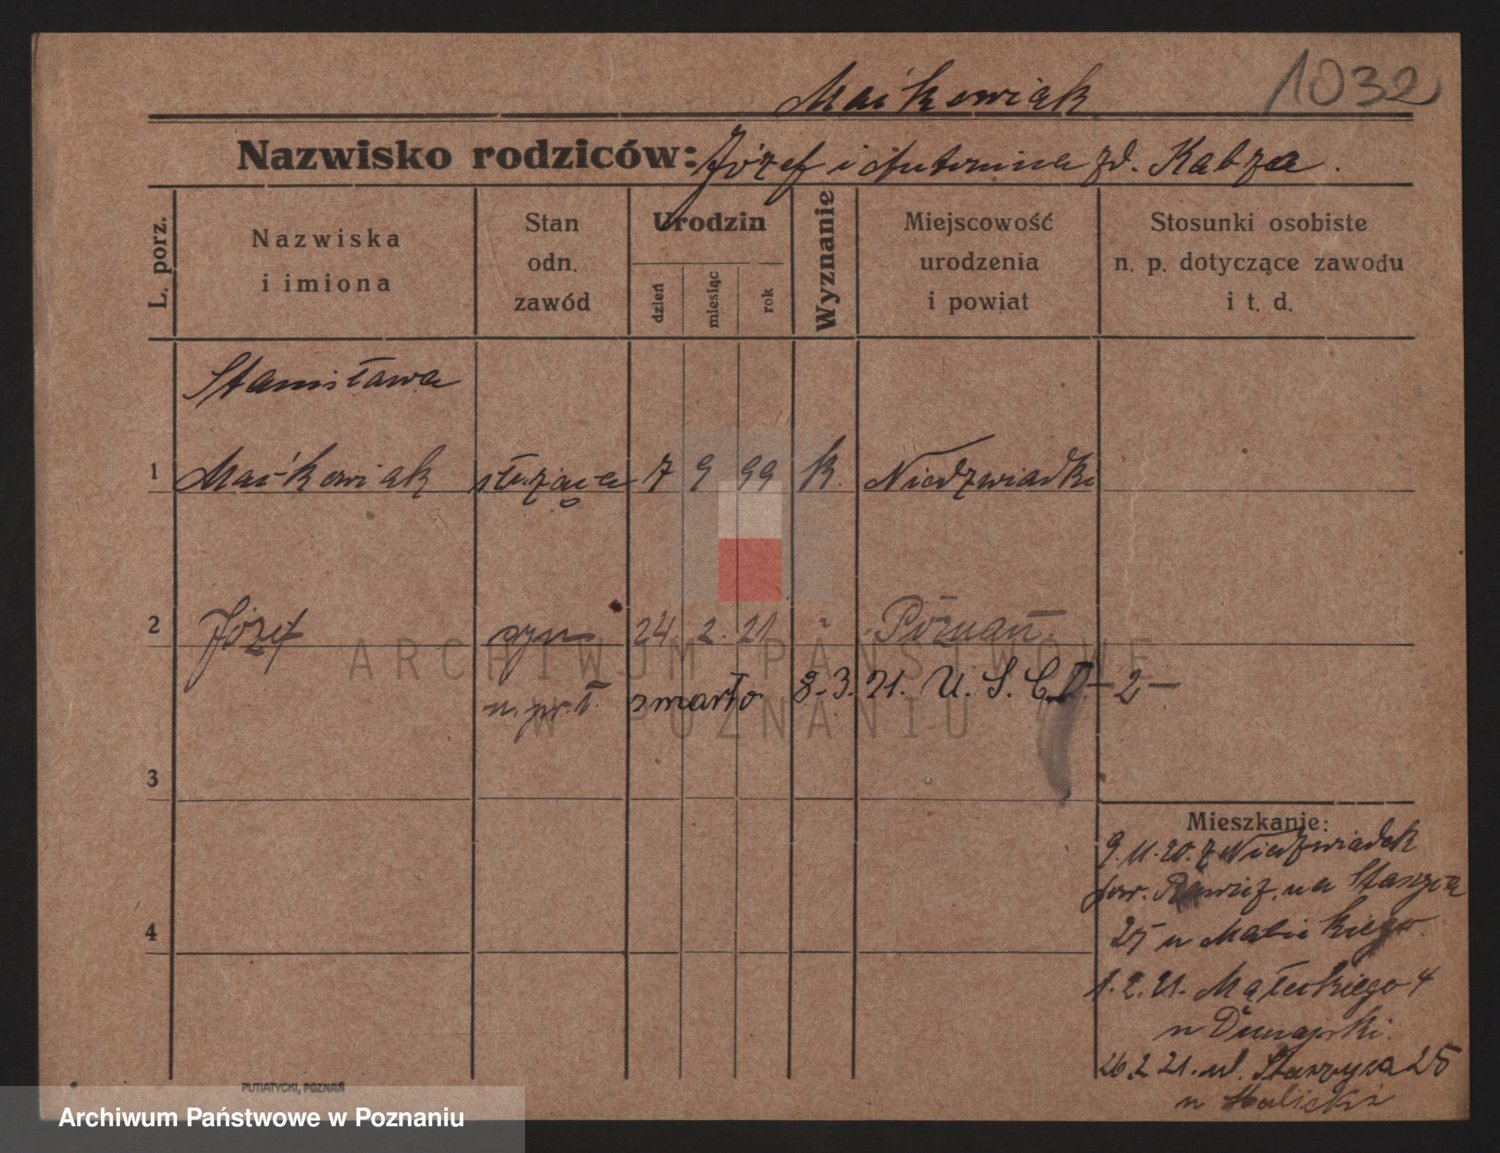 Maćkowiak 1032
Nazwisko rodziców: Józef i Antonina zd. Kabza.
L. porz.
Nazwiska
i imiona
Stan
odn.
zawód
Urodzin
dzień
miesiąc
rok
Wyznanie
Miejscowość
urodzenia
i powiat
Stosunki osobiste
n. p. dotyczące zawodu
i t. d.
Stanisława
1 Maćkowiak służąca 7 9 99 k. Niedzwiadki
2 Józef syn 24 2. 21 Poznań.
n. pr. ł. zmarło 8. 3. 21. U. S. C. - 2 -
3
Mieszkanie:
9. 11. 20. z Niedzwiadek
pow. Rawicz, na Staszyca
4
25 u Malickiego.
1. 2. 21. Małeckiego 4
u Dunajski.
26. 2. 21. ul. Staszyca 25
u Malicki
PUTIATYCKI, POZNAŃ
ARCHIWUM PAŃSTWOWE
W POZNANIU
Archiwum Państwowe w Poznaniu